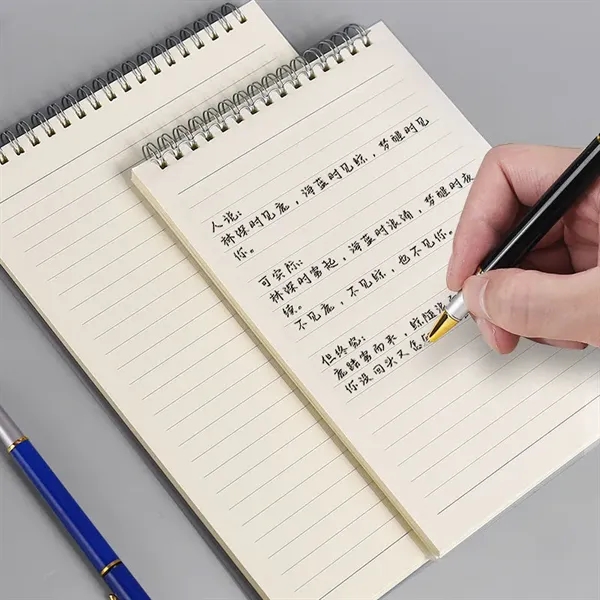 人说:
林深时见鹿，海蓝时见鲸，梦醒时见
你。
可实际:
林深时雾起，海蓝时浪涌，梦醒时夜
续。
不见鹿，不见鲸，也不见你。
但终究:
鹿踏雾而来，鲸随浪
你没回头又怎